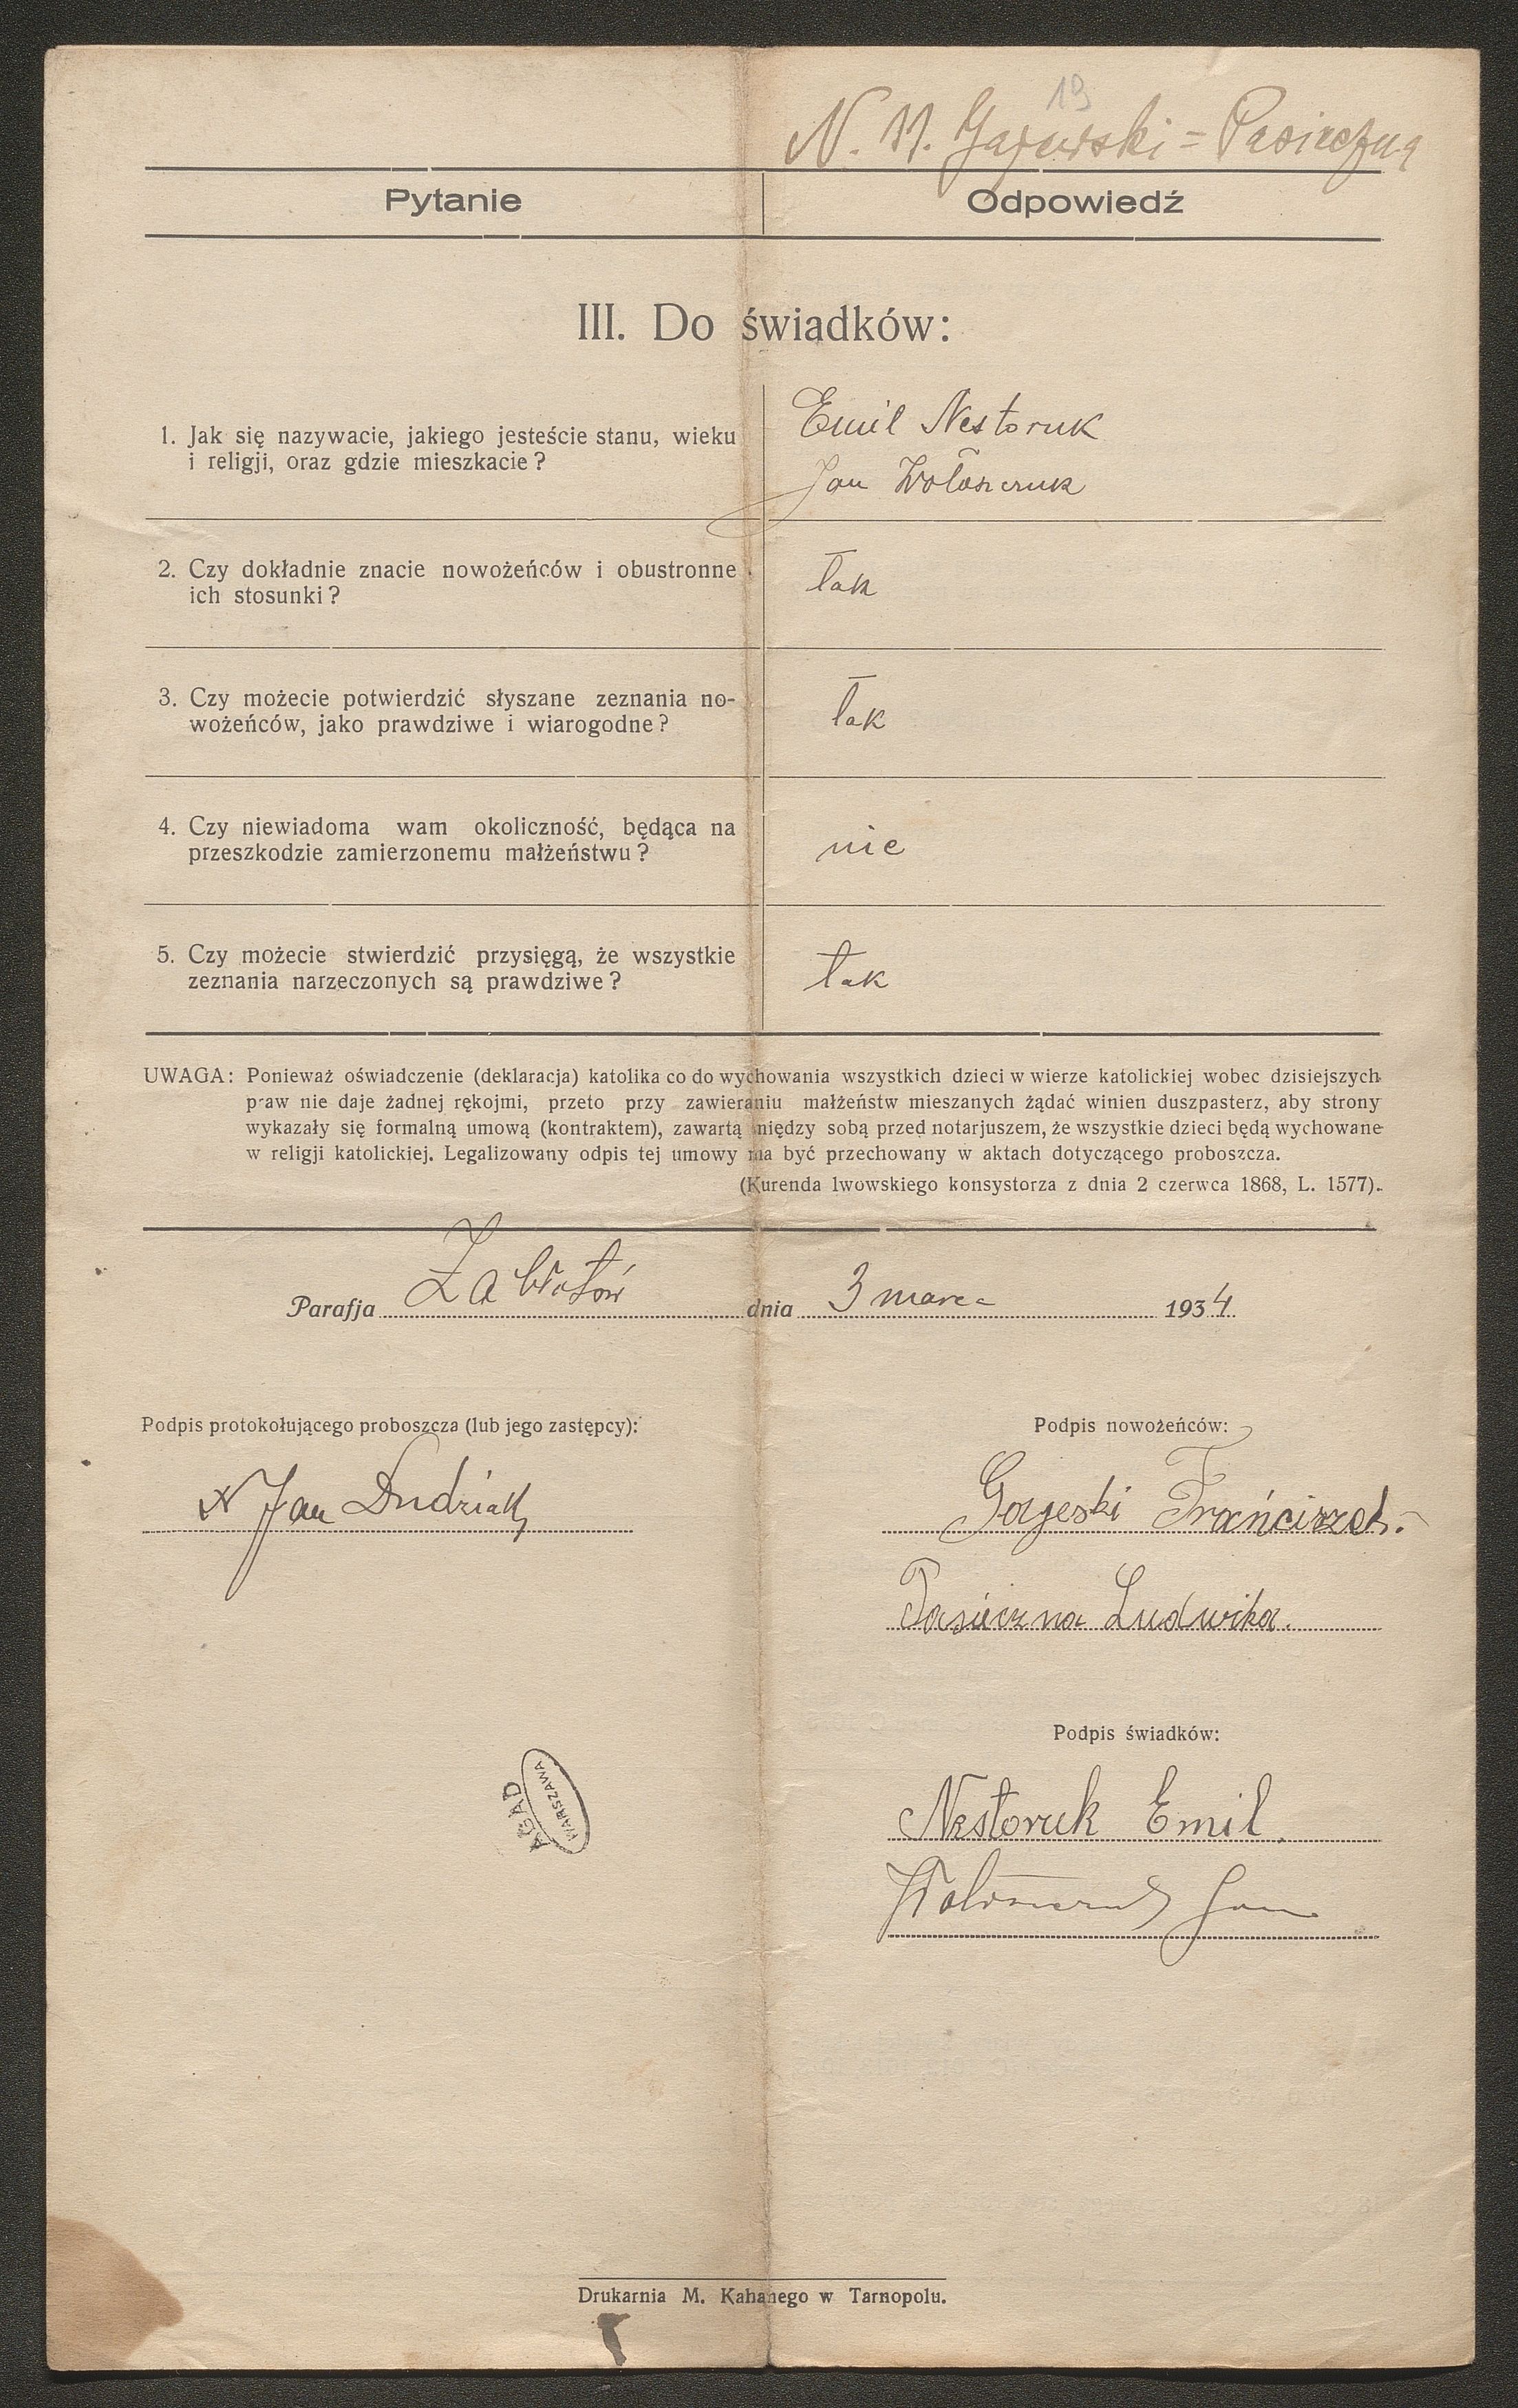 19
N. N. Gajewski = Pasieczna
Pytanie Odpowiedź
III. Do świadków:
1. Jak się nazywacie, jakiego jesteście stanu, wieku
i religji, oraz gdzie mieszkacie?
Emil Nestoruk
Jan Wołoszczuk
2. Czy dokładnie znacie nowożeńców i obustronne
ich stosunki?
tak
3. Czy możecie potwierdzić słyszane zeznania no-
wożeńców, jako prawdziwe i wiarogodne?
tak
4. Czy niewiadoma wam okoliczność, będąca na
przeszkodzie zamierzonemu małżeństwu?
nie
5. Czy możecie stwierdzić przysięgą, że wszystkie
zeznania narzeczonych są prawdziwe?
tak
UWAGA: Ponieważ oświadczenie (deklaracja) katolika co do wychowania wszystkich dzieci w wierze katolickiej wobec dzisiejszych
praw nie daje żadnej rękojmi, przeto przy zawieraniu małżeństw mieszanych żądać winien duszpasterz, aby strony
wykazały się formalną umową (kontraktem), zawartą między sobą przed notarjuszem, że wszystkie dzieci będą wychowane
w religji katolickiej. Legalizowany odpis tej umowy ma być przechowany w aktach dotyczącego proboszcza.
(Kurenda lwowskiego konsystorza z dnia 2 czerwca 1868, L. 1577).
Parafja Zabłotów dnia 3 marca 1934
Podpis protokołującego proboszcza (lub jego zastępcy): Podpis nowożeńców:
X Jan Dudziak Gajeski Frańciszek.
Pasieczna Ludwika.
Podpis świadków:
AGAD
WARSZAWA
Nestoruk Emil
Jan
Drukarnia M. Kahanego w Tarnopolu.